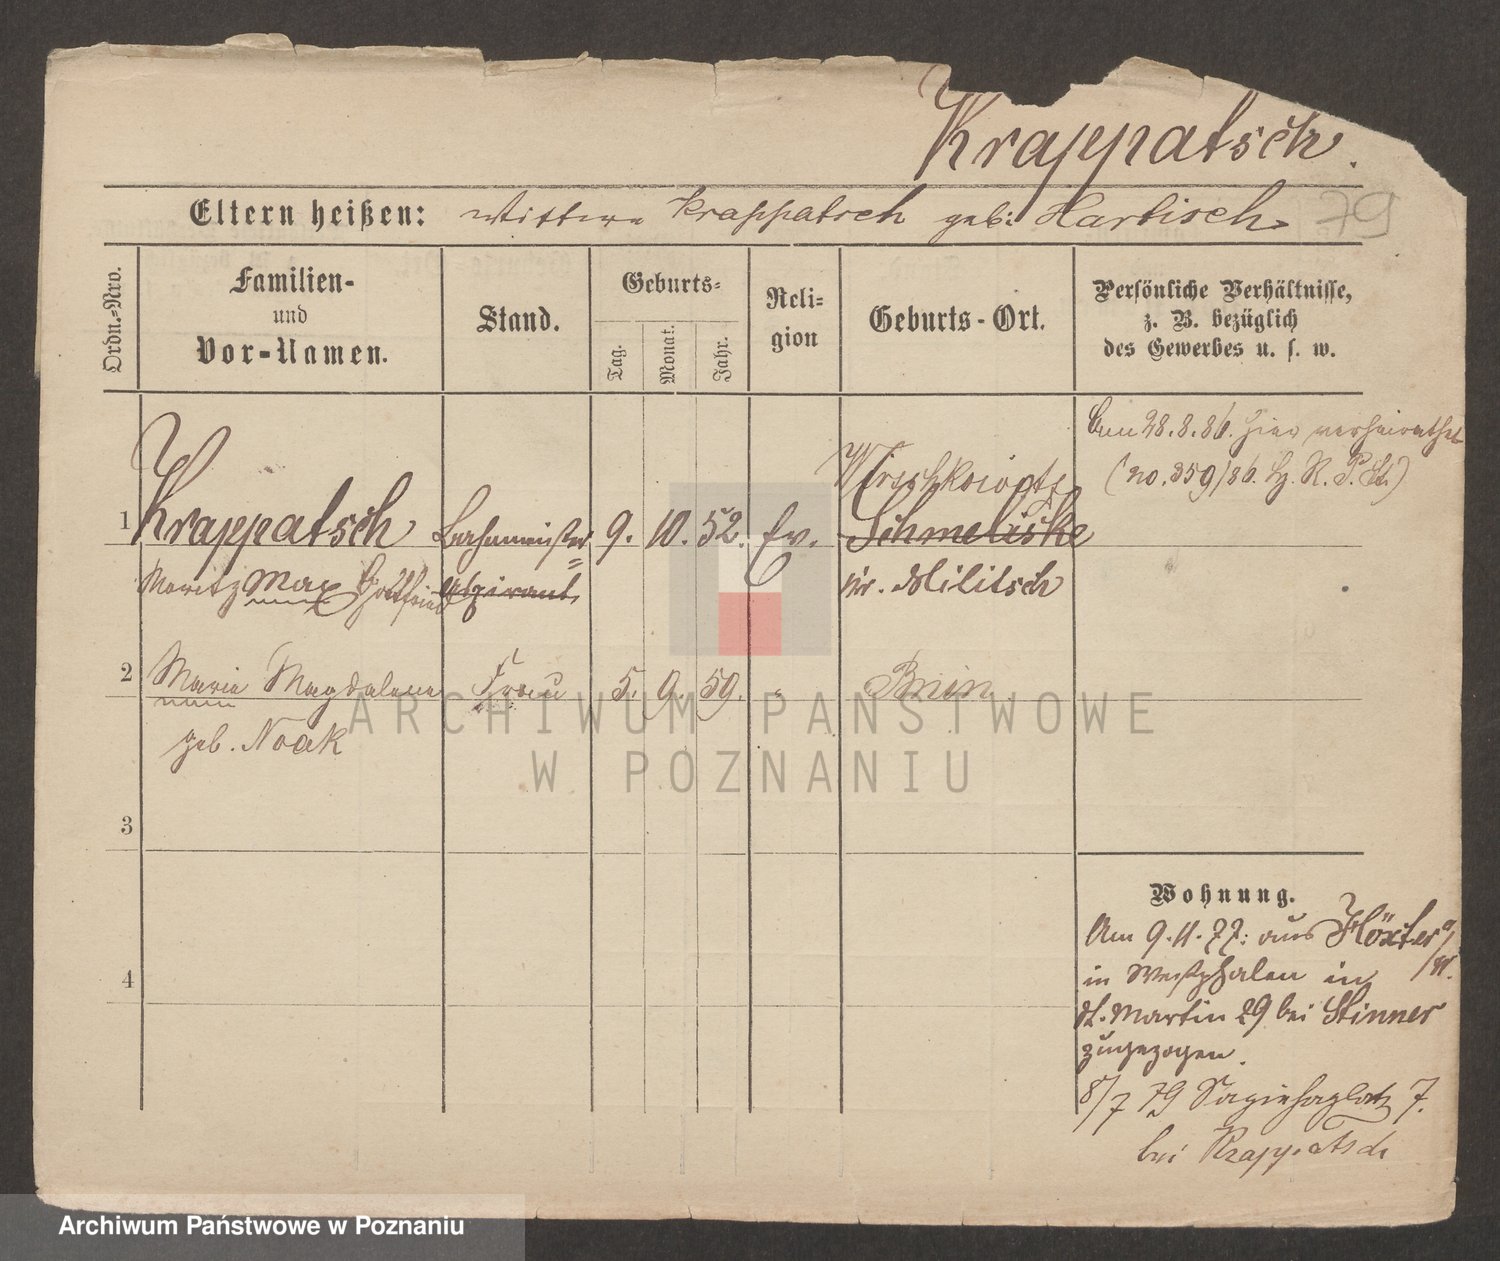 Krappatsch.
Eltern heißen: Wittwe Krappatsch geb: Hartisch
79
Ordn.-Nro.
Familien-
und
Vor-Namen.
Stand.
Geburts-
Tag.
Monat.
Jahr.
Reli-
gion
Geburts-Ort.
Persönliche Verhältnisse,
z. B. bezüglich
des Gewerbes u. s. w.
Am 28.8.86. hier verheirathet
(no. 359/86. R. P. )
Wirschkowitz
1 Krappatsch Bahnmeister 9. 10. 52. Ev. Schmeliske
Moritz Max Gottfried Aspirant Kr. Militsch
2 Marie Magdalena Frau 5. 9. 59. " Bnin
geb. Noak
3
4
Wohnung.
Am 9.11.77: aus Höxter a/W.
in Westphalen in
St. Martin 29 bei Stinner
zugezogen.
8/7 79 Sapiehaplatz 7.
bei Krappatsch
ARCHIWUM PAŃSTWOWE
W POZNANIU
Archiwum Państwowe w Poznaniu